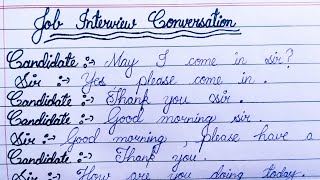 Job Interview Conversation
Candidate :-> May I come in sir?
Sir :-> Yes please come in.
Candidate :-> Thank you sir.
Candidate :-> Good morning sir.
Sir :-> Good morning, please have a
Candidate :-> Thank you.
Sir :-> How are you doing today.